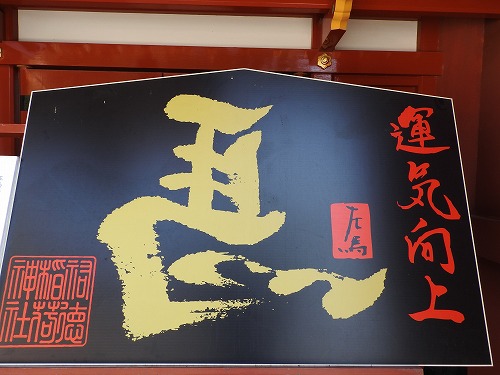 運気向上
左馬
馬
祐徳
稲荷
神社